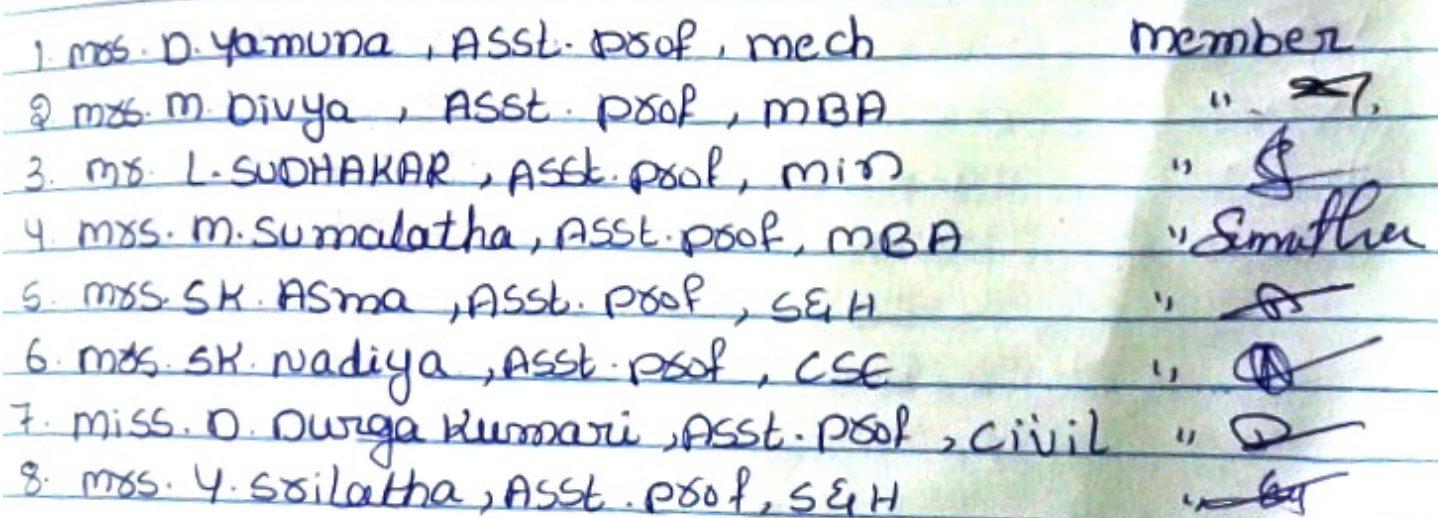 1. mrs. D. Yamuna, Asst. prof, mech member
2 mrs. m. Divya, Asst. prof, MBA "
3. mr. L. SUDHAKAR, Asst. prof, min "
4 mrs. m. Sumalatha, Asst. prof, MBA "
5. mrs. SK. Asma, Asst. prof, S&H "
6. mrs. SK. Nadiya, Asst. prof, CSE "
7. miss. D. Durga Kumari, Asst. prof, civil "
8. mrs. Y. Srilatha, Asst. prof, S&H "